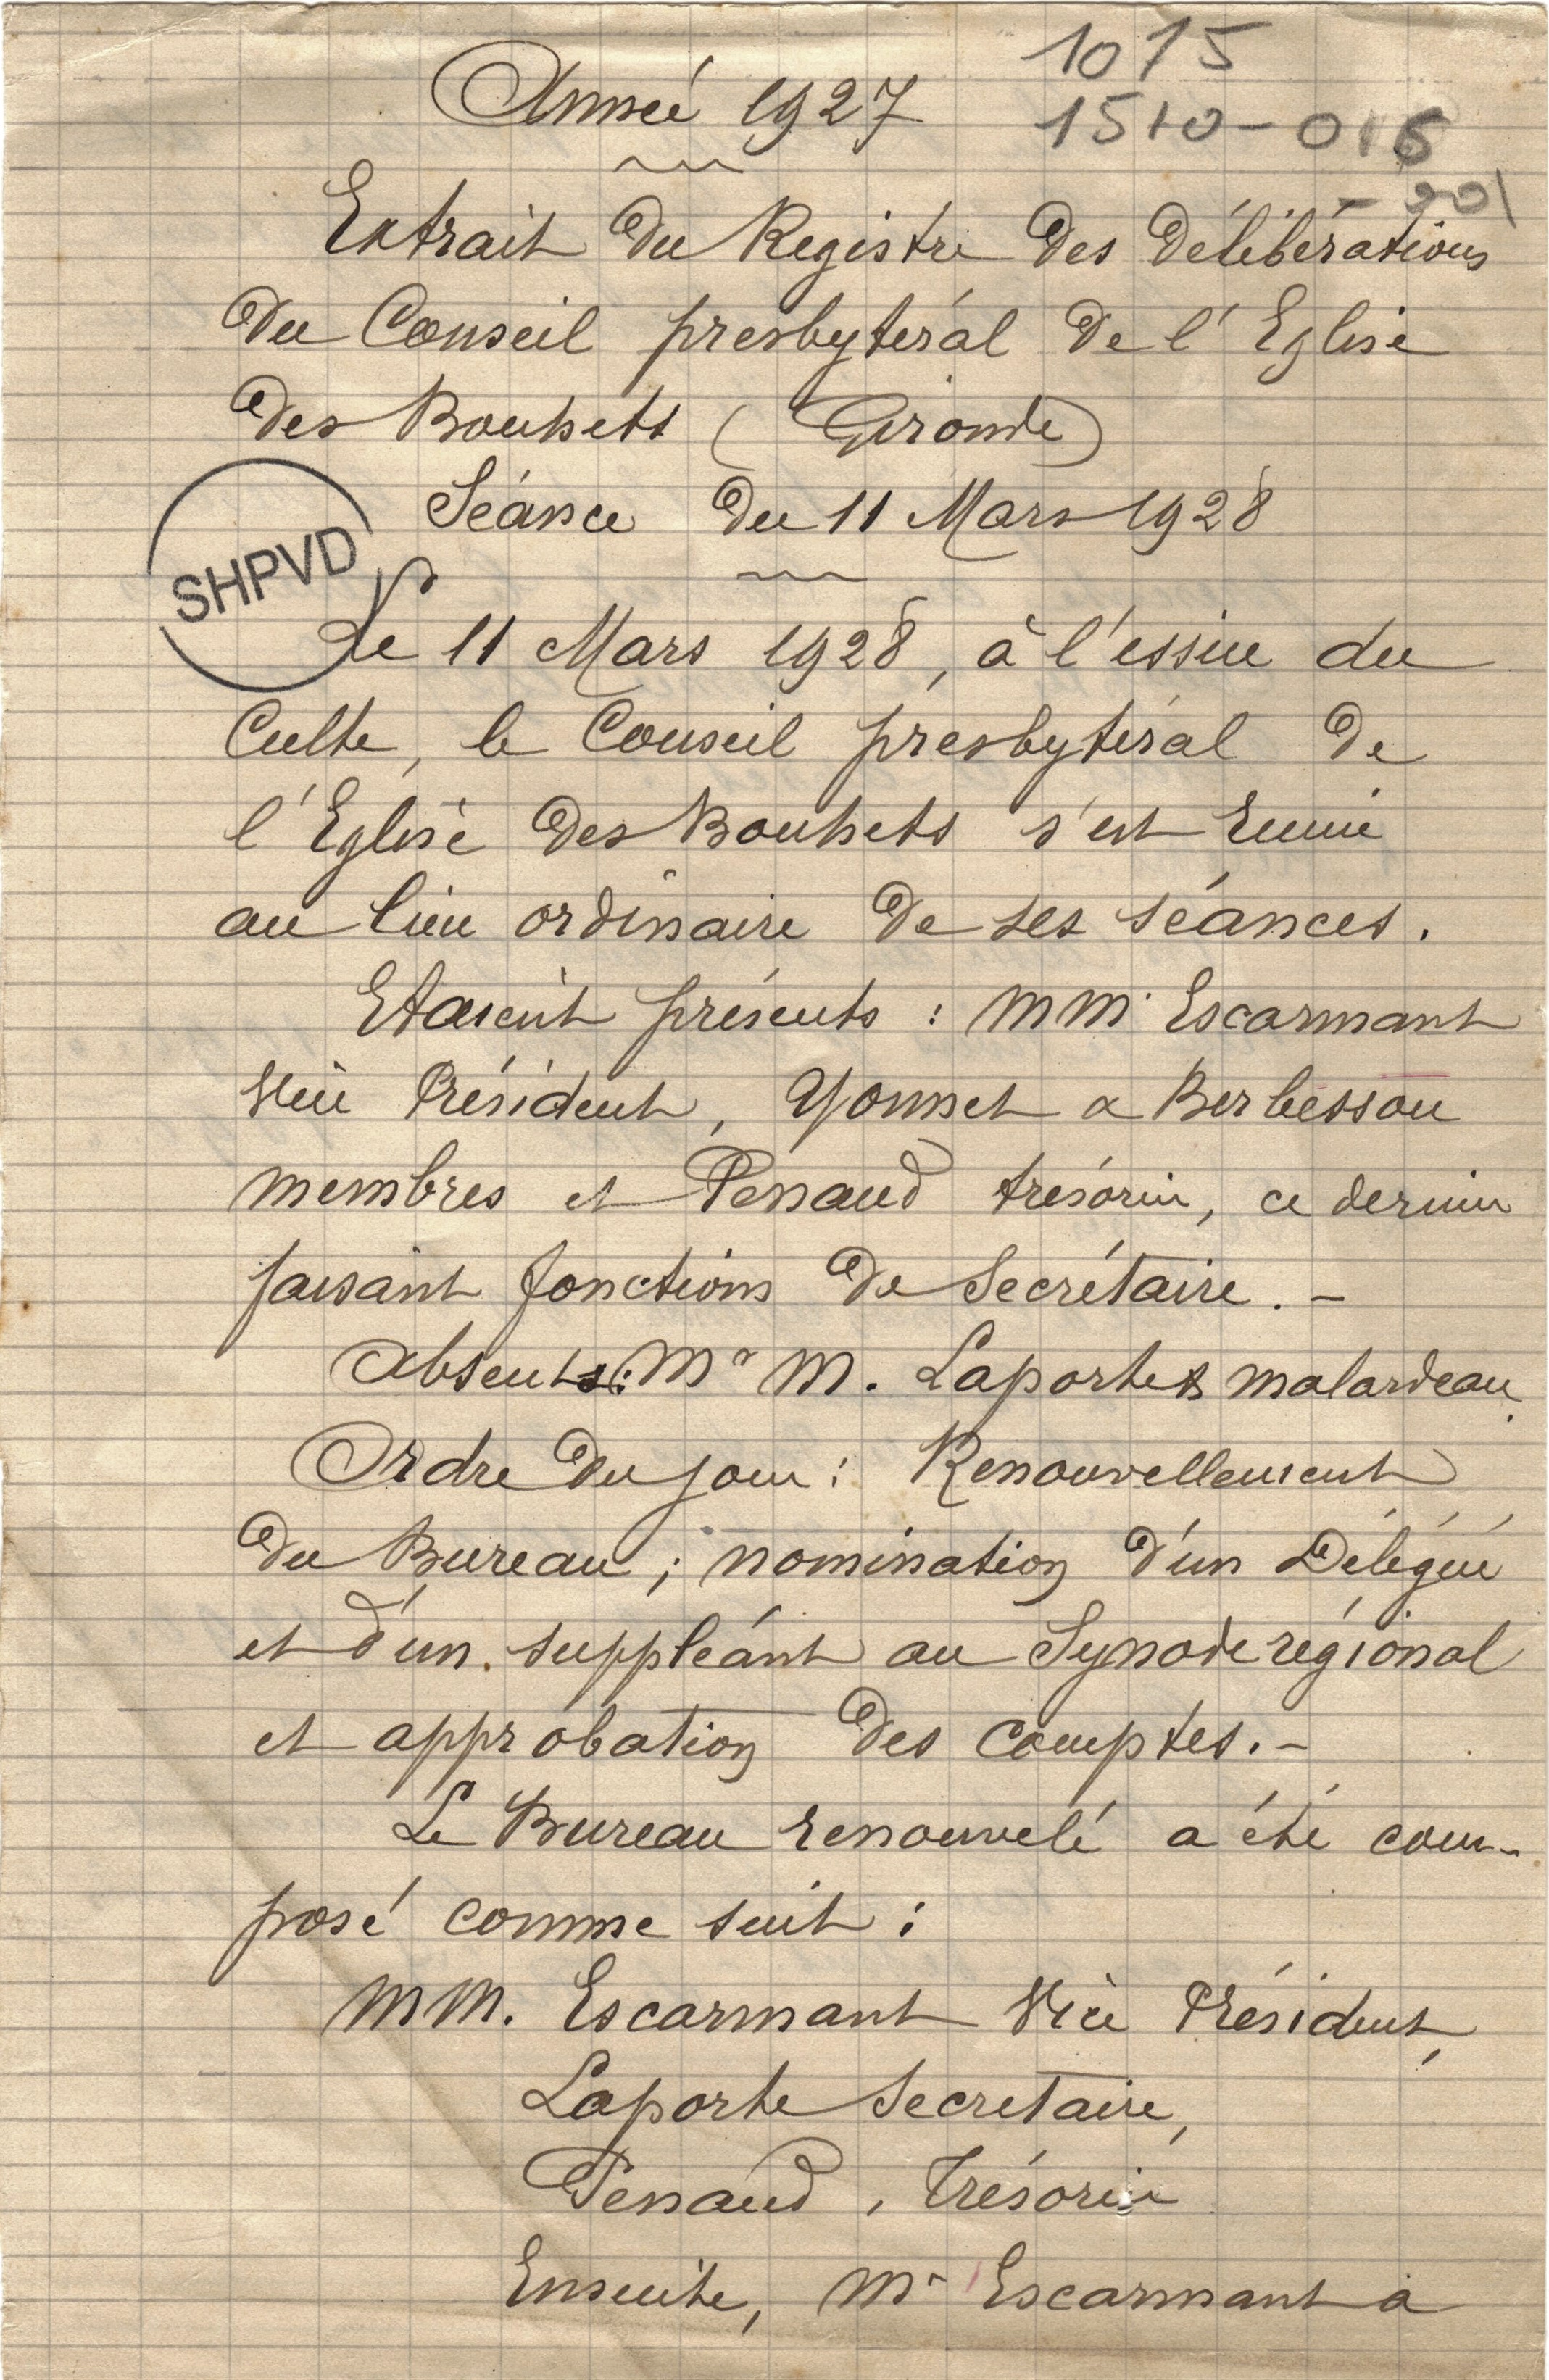 1015
Année 1927
1510-016
- 201
Extrait du Registre des Délibérations
du Conseil presbytéral de l'Eglise
des Bouhets (Gironde)
Séance du 11 Mars 1928
SHPVD
Le 11 Mars 1928, à l'issue du
Culte, le Conseil presbytéral de
l'Eglise des Bouhets s'est réuni
au lieu ordinaire de ses séances.
Etaient présents : MM. Escarmant
Vice Président, Yonnet & Berbessou
membres et Penaud trésorier, ce dernier
faisant fonctions de Secrétaire. -
Absents : Mr M. Laporte & Malardeau.
Ordre du jour : Renouvellement
du Bureau ; nomination d'un Délégué
et d'un suppléant au Synode régional
et approbation des Comptes. -
Le Bureau renouvelé a été com-
posé comme suit :
MM. Escarmant Vice Président,
Laporte Secretaire,
Penaud, Trésorier
Ensuite, Mr Escarmant a